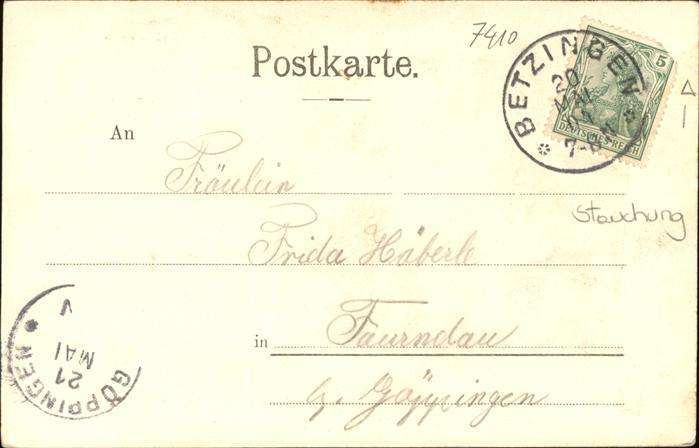 7410
Postkarte.
BETZINGEN
20
MAI
7-8
5
DEUTSCHES REICH
An
Fräulein
Stauchung
Frida Häberle
in Faurndau
b. Göppingen
GÖPPINGEN
21
MAI
V